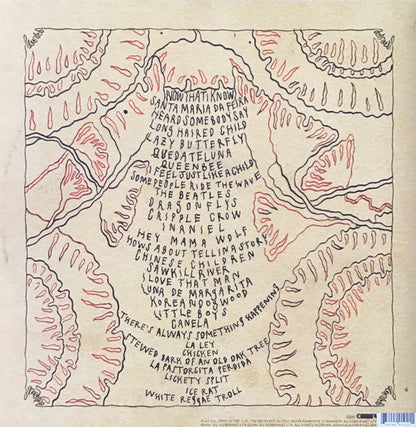 NOWTHATIKNOW
SANTA MARIA DA FEIRA
HEARD SOMEBODY SAY
LONG HAIRED CHILD
LAZY BUTTERFLY
QUEDATELUNA
QUEENBEE
I FEEL JUST LIKE A CHILD
SOME PEOPLE RIDE THE WAVE
THE BEATLES
DRAGONFLYS
CRIPPLE CROW
INANIEL
HEY MAMA WOLF
HOWS ABOUT TELLIN A STORY
CHINESE CHILDREN
SAWKILL RIVER
I LOVE THAT MAN
LUNA DE MARGARITA
KOREANDOGWOOD
LITTLE BOYS
CANELA
THERE'S ALWAYS SOMETHING HAPPENING
LA LEY
CHICKEN
STEWED BARK OF AN OLD OAK TREE
LA PASTORCITA PERDIDA
LICKETY SPLIT
ICE RAT
WHITE REGGAE TROLL